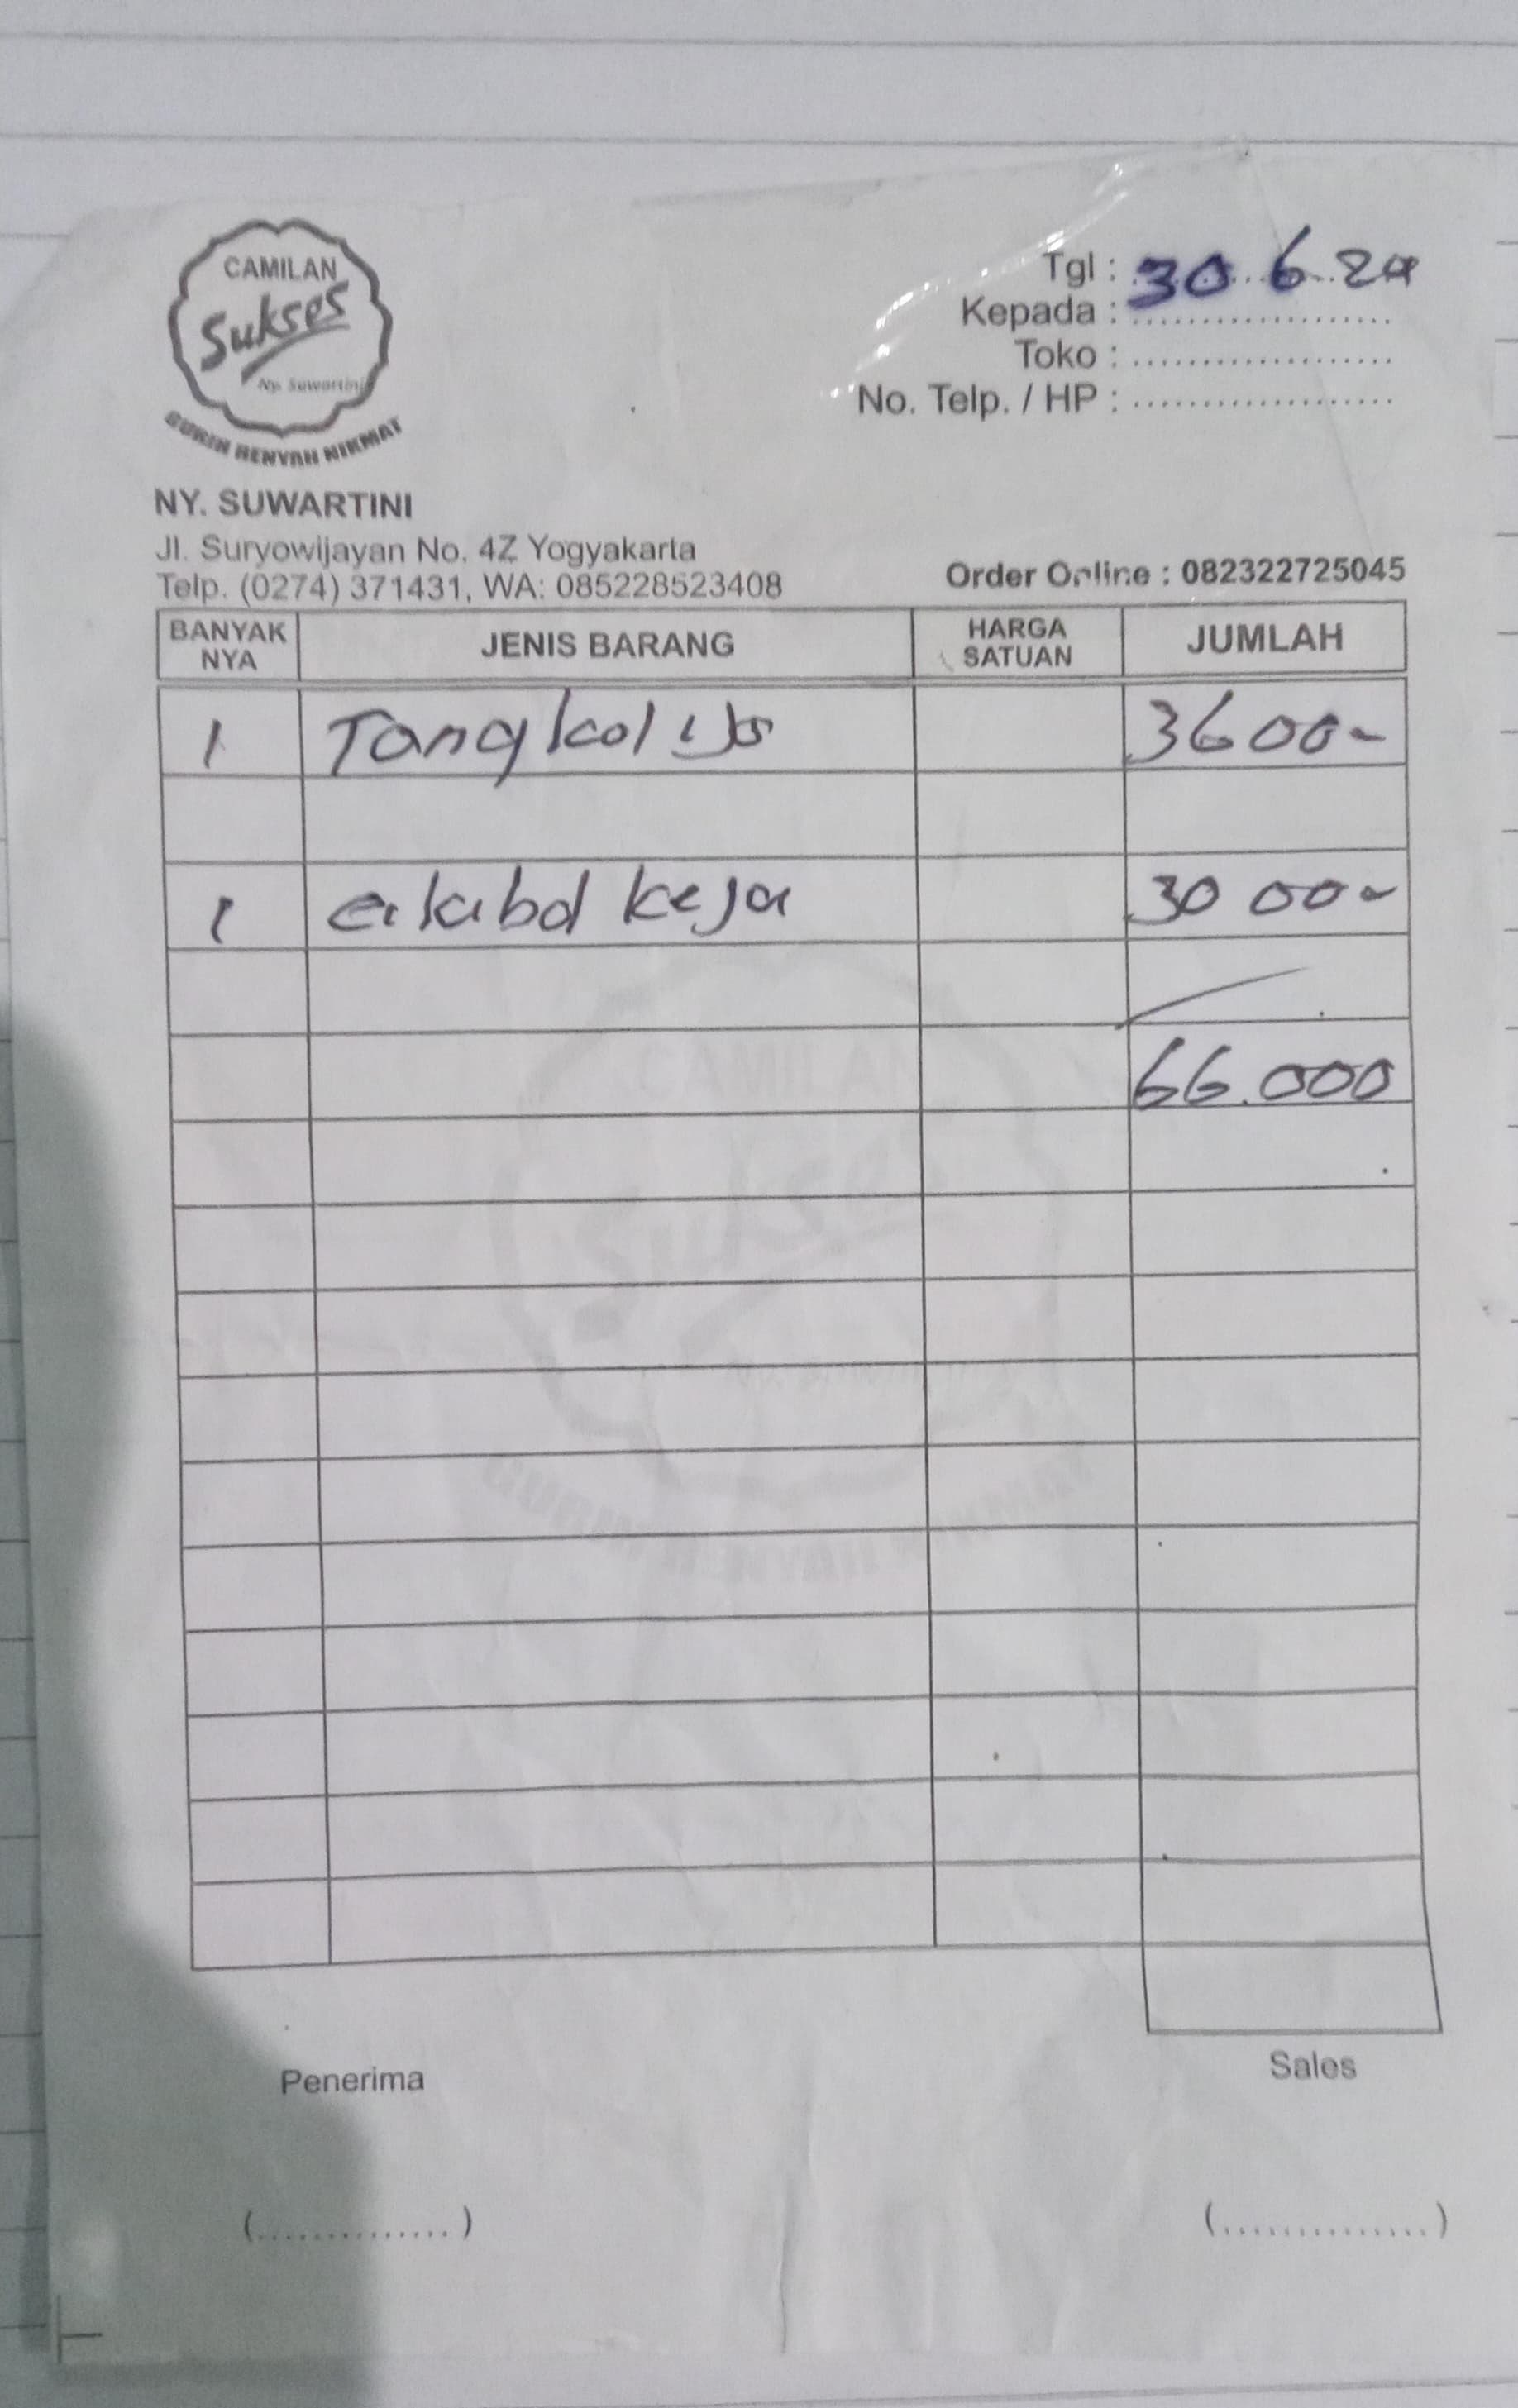 CAMILAN
Sukses
Ny. Suwartini
GURIH RENYAH NIKMAT
Tgl : 30 6 24
Kepada : ....................
Toko : ....................
No. Telp. / HP : ....................
NY. SUWARTINI
Jl. Suryowijayan No. 4Z Yogyakarta
Telp. (0274) 371431, WA: 085228523408
Order Online : 082322725045
BANYAK NYA JENIS BARANG HARGA SATUAN JUMLAH
1 3600-
1 keja 30 00-
66.000
Penerima Sales
(..............) (..............)